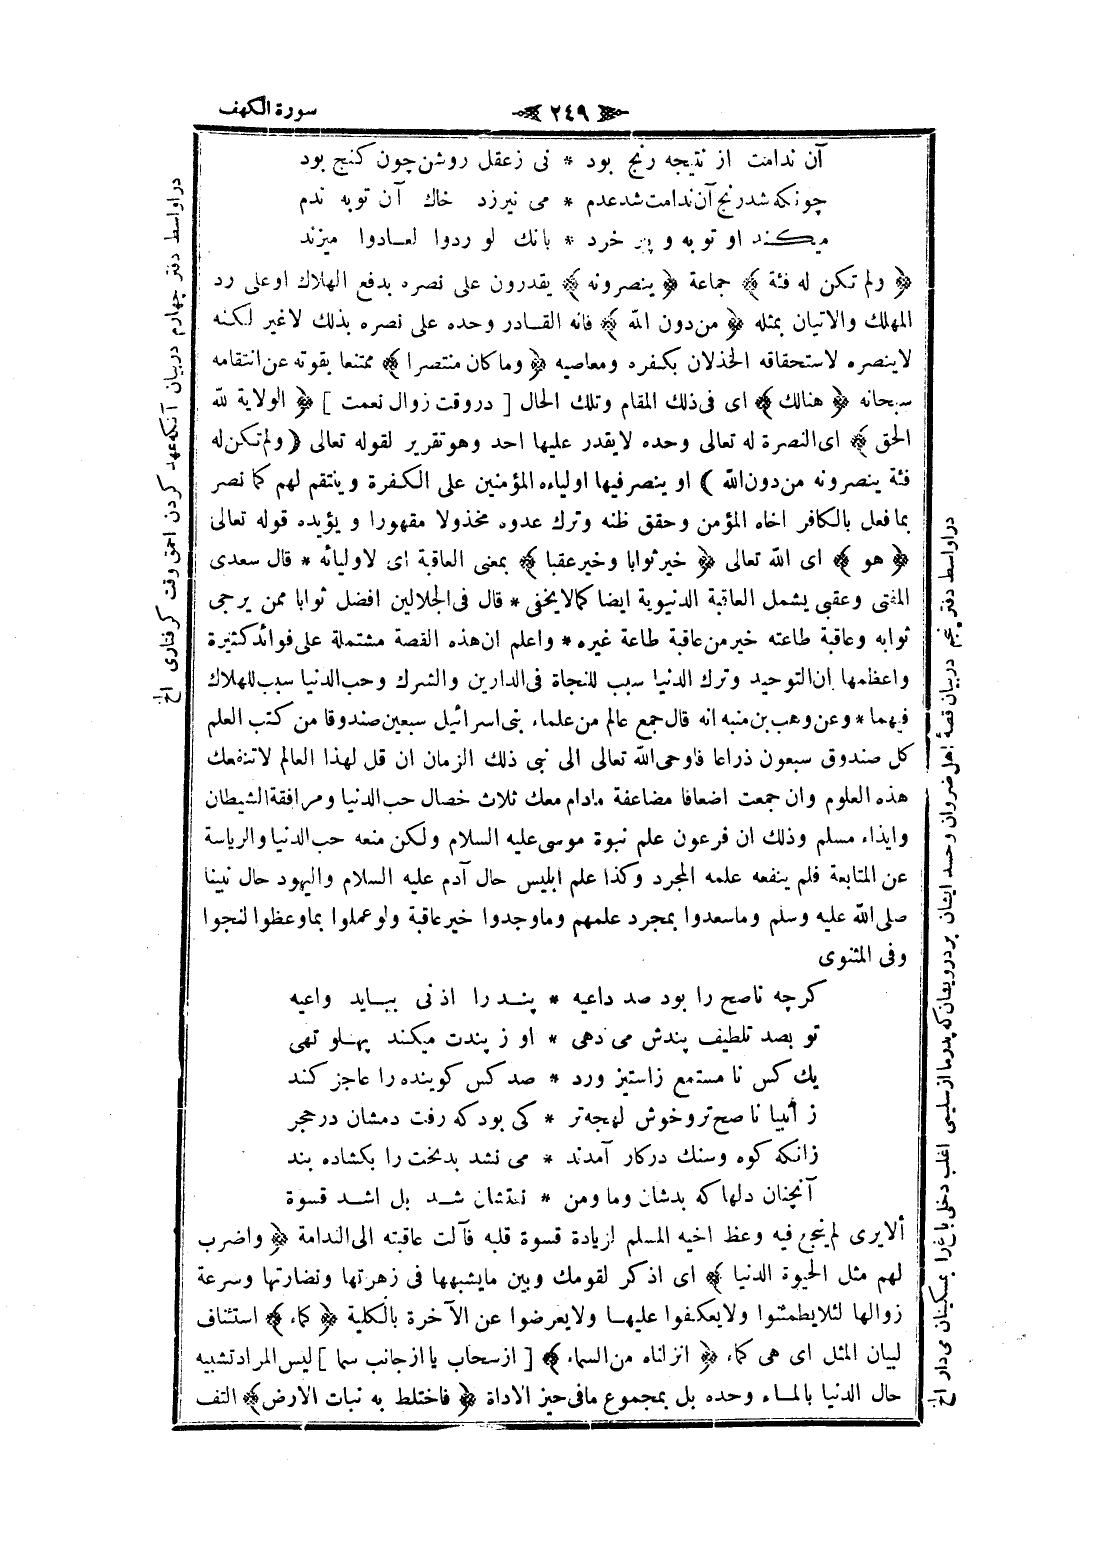 سورة الكهف
﴿ ٢٤٩ ﴾
آن ندامت از نتيجه رنج بود * نى زعقل روشن چون كنج بود
چونكه شد رنج آن ندامت شد عدم * مى نيرزد خاك آن توبه ندم
ميكند او توبه و پير خرد * بانك لو ردوا لعادوا ميزند
﴿ ولم تكن له فئة ﴾ جماعة ﴿ ينصرونه ﴾ يقدرون على نصره بدفع الهلاك اوعلى رد
المهلك والاتيان بمثله ﴿ من دون الله ﴾ فانه القادر وحده على نصره بذلك لاغير لكنه
لاينصره لاستحقاقه الخذلان بكفره ومعاصيه ﴿ وما كان منتصرا ﴾ ممتنعا بقوته عن انتقامه
سبحانه ﴿ هنالك ﴾ اى فى ذلك المقام وتلك الحال [ دروقت زوال نعمت ] ﴿ الولاية لله
الحق ﴾ اى النصرة له تعالى وحده لايقدر عليها احد وهو تقرير لقوله تعالى ( ولم تكن له
فئة ينصرونه من دون الله ) او ينصر فيها اولياءه المؤمنين على الكفرة وينتقم لهم كما نصر
بما فعل بالكافر اخاه المؤمن وحقق ظنه وترك عدوه مخذولا مقهورا و يؤيده قوله تعالى
﴿ هو ﴾ اى الله تعالى ﴿ خير ثوابا وخير عقبا ﴾ بمعنى العاقبة اى لاوليائه * قال سعدى
المفتى وعقبى يشمل العاقبة الدنيوية ايضا كما لايخفى * قال فى الجلالين افضل ثوابا ممن يرجى
ثوابه وعاقبة طاعته خير من عاقبة طاعة غيره * واعلم ان هذه القصة مشتملة على فوائد كثيرة
واعظمها ان التوحيد وترك الدنيا سبب للنجاة فى الدارين والشرك وحب الدنيا سبب للهلاك
فيهما * وعن وهب بن منبه انه قال جمع عالم من علماء بنى اسرائيل سبعين صندوقا من كتب العلم
كل صندوق سبعون ذراعا فاوحى الله تعالى الى نبى ذلك الزمان ان قل لهذا العالم لاتنفعك
هذه العلوم وان جمعت اضعافا مضاعفة مادام معك ثلاث خصال حب الدنيا ومرافقة الشيطان
وايذاء مسلم وذلك ان فرعون علم نبوة موسى عليه السلام ولكن منعه حب الدنيا والرياسة
عن المتابعة فلم ينفعه علمه المجرد وكذا علم ابليس حال آدم عليه السلام واليهود حال نبينا
صلى الله عليه وسلم وما سعدوا بمجرد علمهم وما وجدوا خير عاقبة ولو عملوا بما وعظوا لنجوا
وفى المثنوى
كرچه ناصح را بود صد داعيه * پند را اذنى ببايد واعيه
تو بصد تلطيف پندش مى دهى * او ز پندت ميكند پهلو تهى
يك كس نا مستمع زاستيز ورد * صد كس كوينده را عاجز كند
ز أنبيا ناصح تر وخوش لهجه تر * كى بود كه رفت دمشان در حجر
زانكه كوه وسنك دركار آمدند * مى نشد بدبخت را بكشاده بند
آنچنان دلها كه بدشان وما ومن * نعتشان شد بل اشد قسوة
ألايرى لم ينجع فيه وعظ اخيه المسلم لزيادة قسوة قلبه فآلت عاقبته الى الندامة ﴿ واضرب
لهم مثل الحيوة الدنيا ﴾ اى اذكر لقومك وبين مايشبهها فى زهرتها ونضارتها وسرعة
زوالها لئلا يطمئنوا ولايعكفوا عليها ولايعرضوا عن الآخرة بالكلية ﴿ كماء ﴾ استئناف
لبيان المثل اى هى كماء ﴿ انزلناه من السماء ﴾ [ از سحاب يا از جانب سما ] ليس المراد تشبيه
حال الدنيا بالماء وحده بل بمجموع مافى حيز الاداة ﴿ فاختلط به نبات الارض ﴾ التف
در اواسط دفتر چهارم در بيان آنكه عهد كردن احمق وقت كرفتارى الخ
در اواسط دفتر پنجم در بيان قصهٔ اهل ضروان وحسد ايشان بر درويشان كه پدر ما از سليمى اغلب دخلى باغ را بمسكينان مى داد الخ